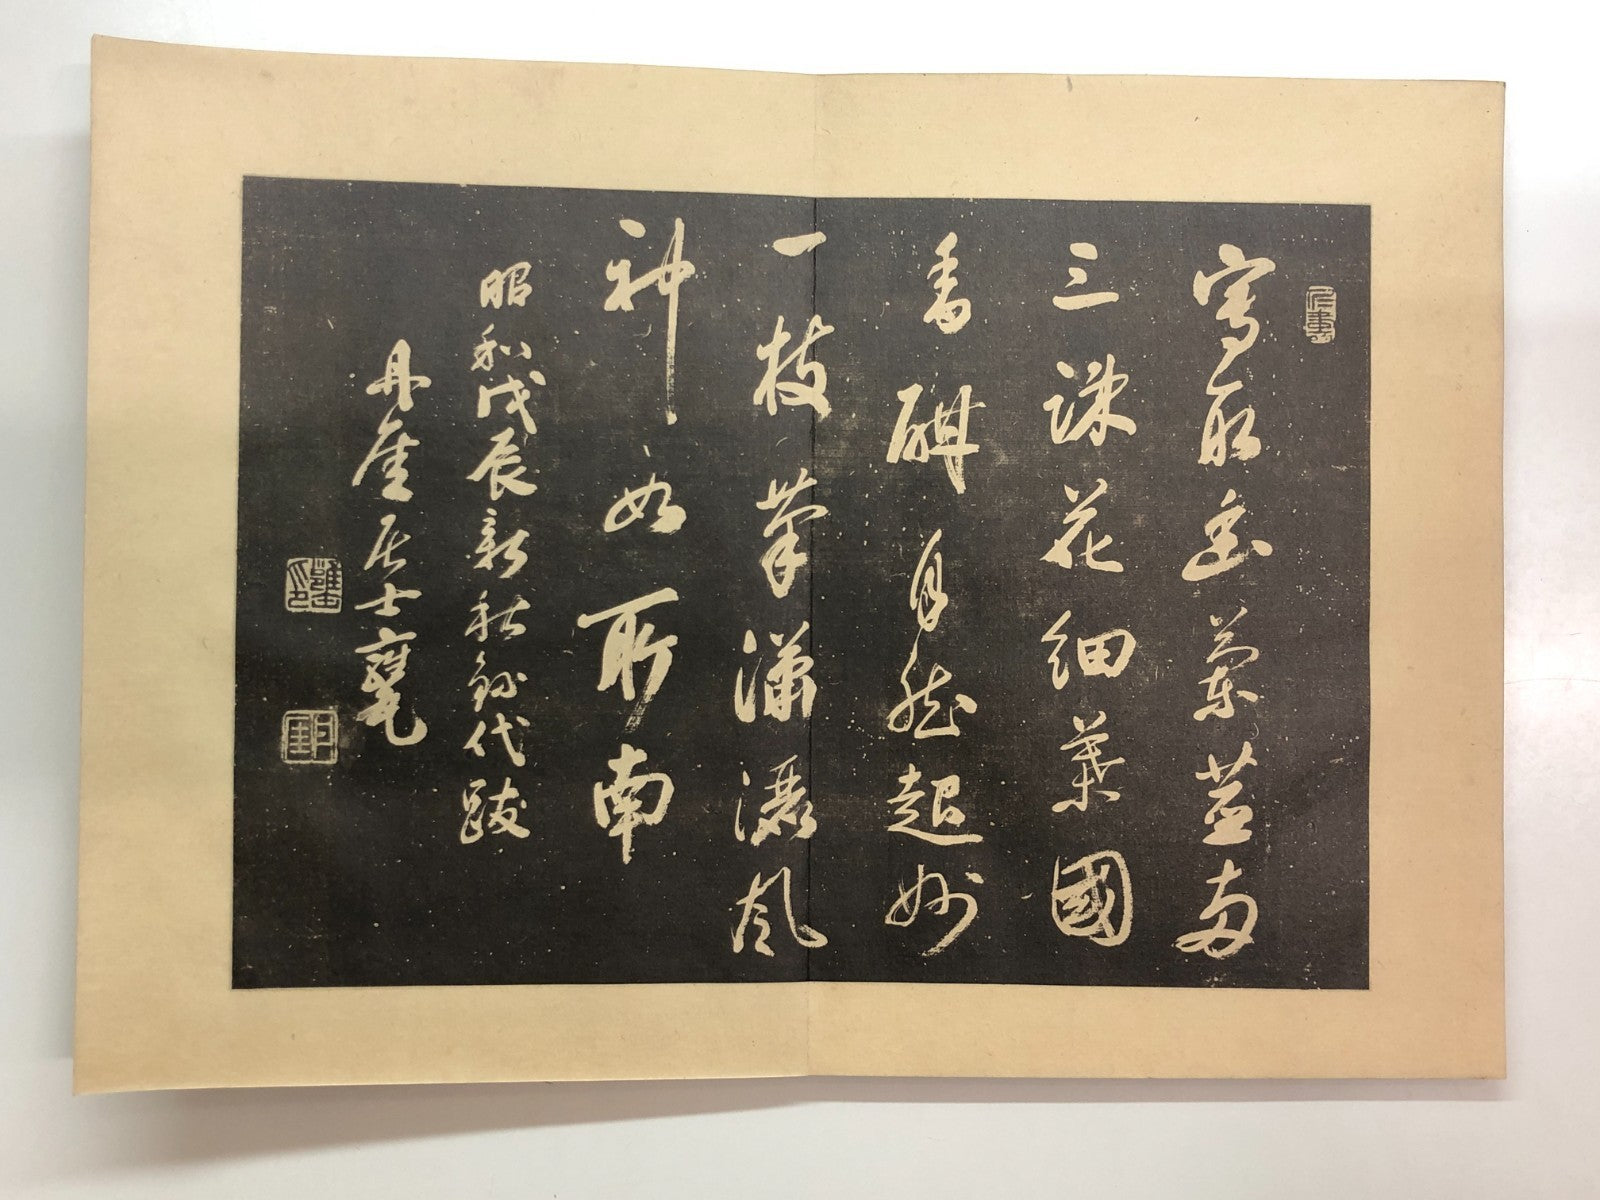 寫取幽蘭兩
三疎花細葉國
香酣自然超妙
一枝筆瀟灑風
神如所南
昭和戊辰新秋錄代跋
丹崖居士